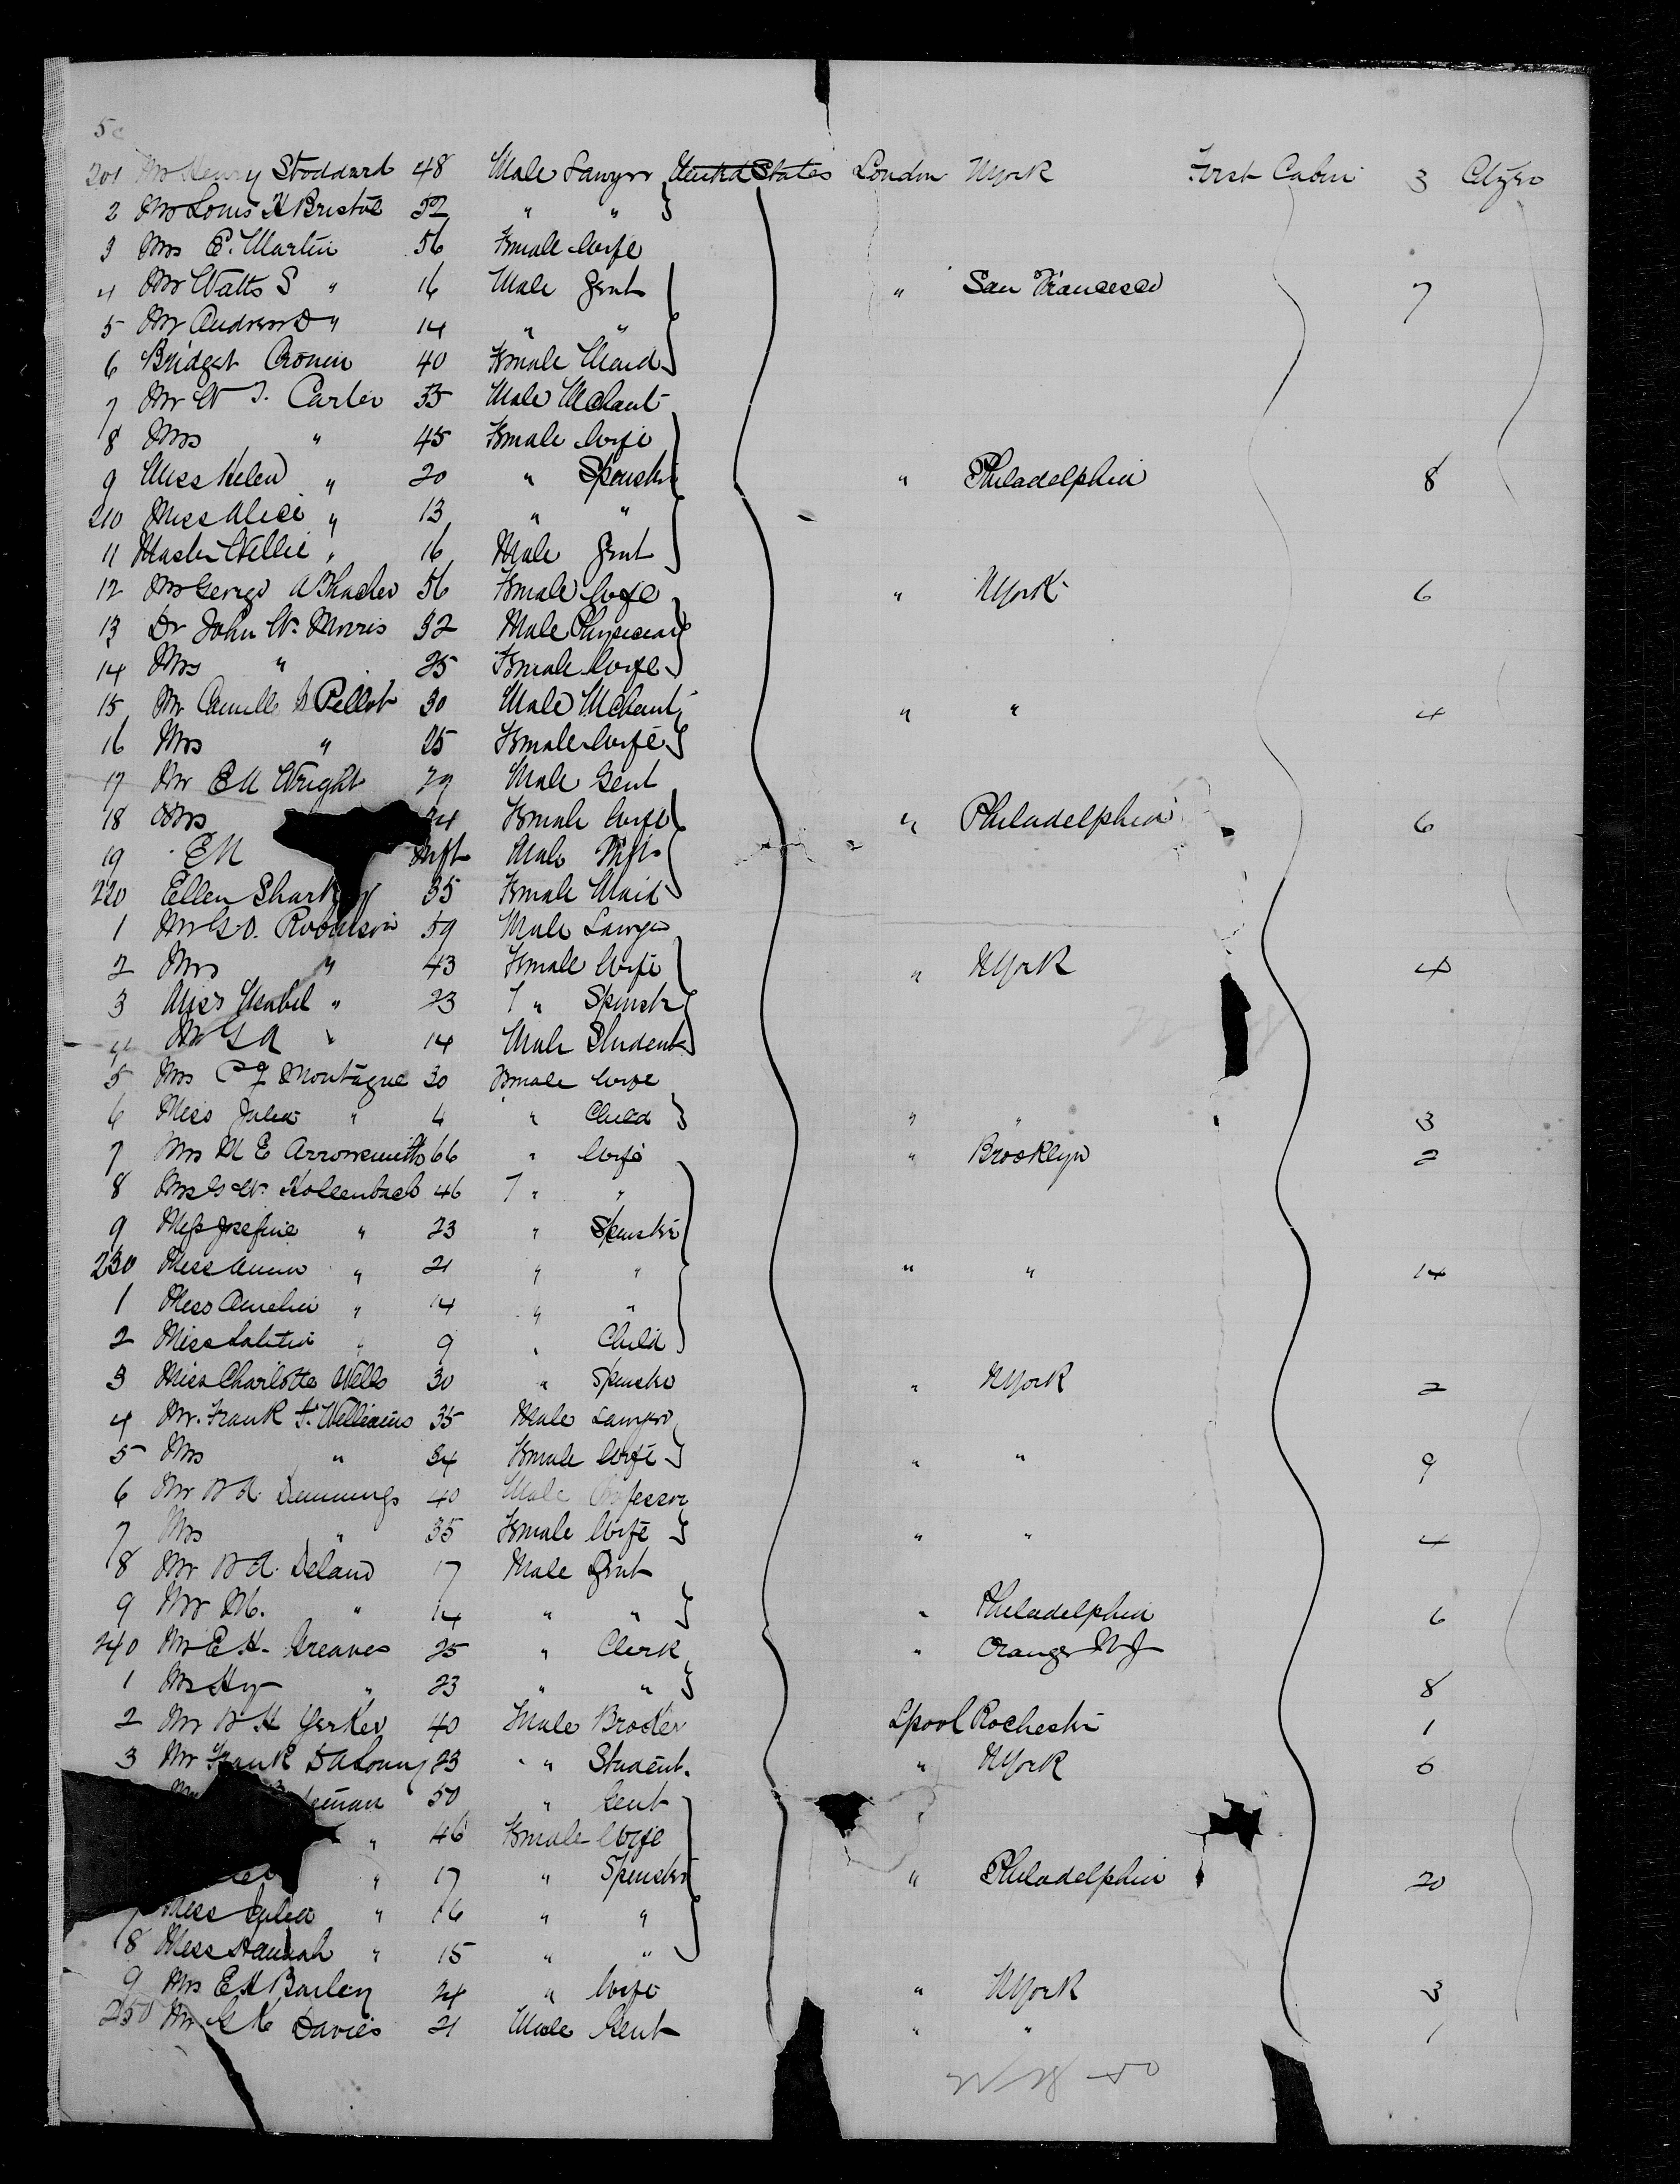 5
201 Mr Henry Stoddard 48 Male Lawyer United States London NYork First Cabin 3 Citzen
2 Mr Louis H Bristol 52 " "
3 Mrs E. Martin 56 Female Wife
4 Mr Watts S " 16 Male Gent " San Francesco 7
5 Mr Andrew D " 14 " "
6 Bridget Cronin 40 Female Maid
7 Mr W T. Carter 55 Male Mchant
8 Mrs " 45 Female Wife
9 Miss Helen " 20 " Spinstr " Philadelphia 8
210 Miss Alice " 13 " "
11 Master Willie " 16 Male Gent
12 Mrs George 56 Female Wife " NYork 6
13 Dr John W. Morris 32 Male Physician
14 Mrs " 25 Female Wife
15 Mr Camille Pellet 30 Male Mchant " " 4
16 Mrs " 25 Female Wife
17 Mr E M Wright 29 Male Gent
18 Mrs 24 Female Wife " Philadelphia 6
19 E M Inft Male Inft
220 Ellen Shark 35 Female Maid
1 Mr G D. Robinson 59 Male Lawyer
2 Mrs " 43 Female Wife " NYork 4
3 Miss " 23 " Spinstr
4 Mr G A " 14 Male Student
5 Mrs Montague 30 Female Wife
6 Miss Julia " 4 " Child " " 3
7 Mrs M E Arrowsmith 66 " Wife " Brooklyn 2
8 Mrs G W. Hollenback 46 " "
9 Miss Josefine " 23 " Spinstr
230 Miss " 21 " " " " 14
1 Miss Amelia " 14 " "
2 Miss " 9 " Child
3 Miss Charlotte Wells 30 " Spinstr " NYork 2
4 Mr. Frank S. Williams 35 Male Lawyer
5 Mrs " 34 Female Wife " " 9
6 Mr W A. Demmings 40 Male Professor
7 Mrs " 35 Female Wife " " 4
8 Mr W A. Deland 17 Male Gent
9 Mr M. " 14 " " " Philadelphia 6
240 Mr E H. Greaves 25 " Clerk " Orange N J
1 Mr Hy " 23 " " 8
2 Mr W H Yerkes 40 Male Broker Lpool Rochestr 1
3 Mr Frank 23 " Student. " NYork 6
50 " Gent
" 46 Female Wife
" 17 " Spinstr " Philadelphia 20
7 Miss Julia " 16 " "
8 Miss Hannah " 15 " "
9 Mrs E H Barley 24 " Wife " NYork 3
250 Mr G K Davies 21 Male Gent " " 1